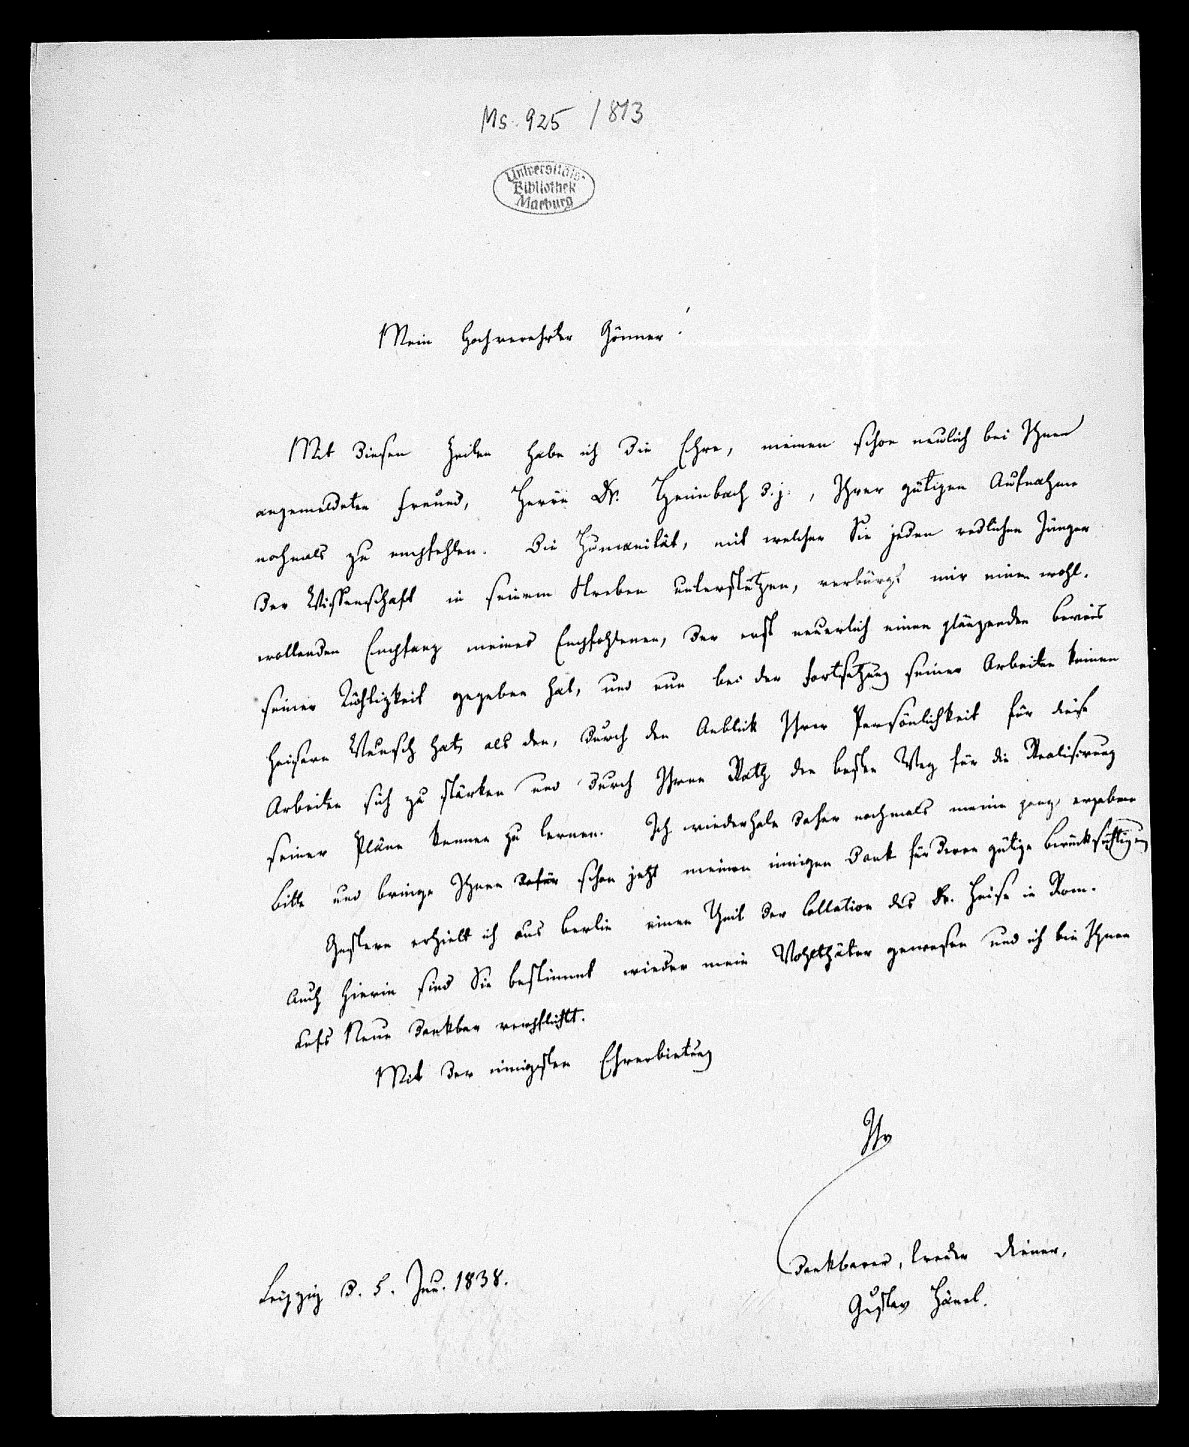 Ms. 925 / 813
Universitäts-
Bibliothek
Marburg
Mein hochverehrter Gönner!
Mit diesen Zeilen habe ich die Ehre, meinen schon neulich bei Ihnen
angemeldeten Freund, Herrn Dr. Heimbach d. j., Ihrer gütigen Aufnahme
nochmals zu empfehlen. Die Humanität, mit welcher Sie jeden redlichen Jünger
der Wissenschaft in seinem Streben unterstützen, verbürgt mir einen wohl-
wollenden Empfang meines Empfohlenen, der erst neuerlich einen glänzenden Beweis
seiner Tüchtigkeit gegeben hat, und nun bei der Fortsetzung seiner Arbeiten keinen
heisern Wunsch hat, als den, durch den Anblick Ihrer Persönlichkeit für diese
Arbeiten sich zu stärken und durch Ihren Rath den besten Weg für die Realisirung
seiner Pläne kennen zu lernen. Ich wiederhole daher nochmals meine ganz ergebene
Bitte und bringe Ihnen dafür schon jetzt meinen innigen Dank für deren gütige Berücksichtigung
Gestern erhielt ich aus Berlin einen Theil der Collation des Dr. Heise in Rom.
Auch hierin sind Sie bestimmt wieder mein Wohlthäter gewesen und ich bin Ihnen
aufs Neue dankbar verpflichtet.
Mit der innigsten Ehrerbietung
Ihr
dankbarer, treuer Diener,
Gustav Hänel.
Leipzig d. 5. Jun. 1838.